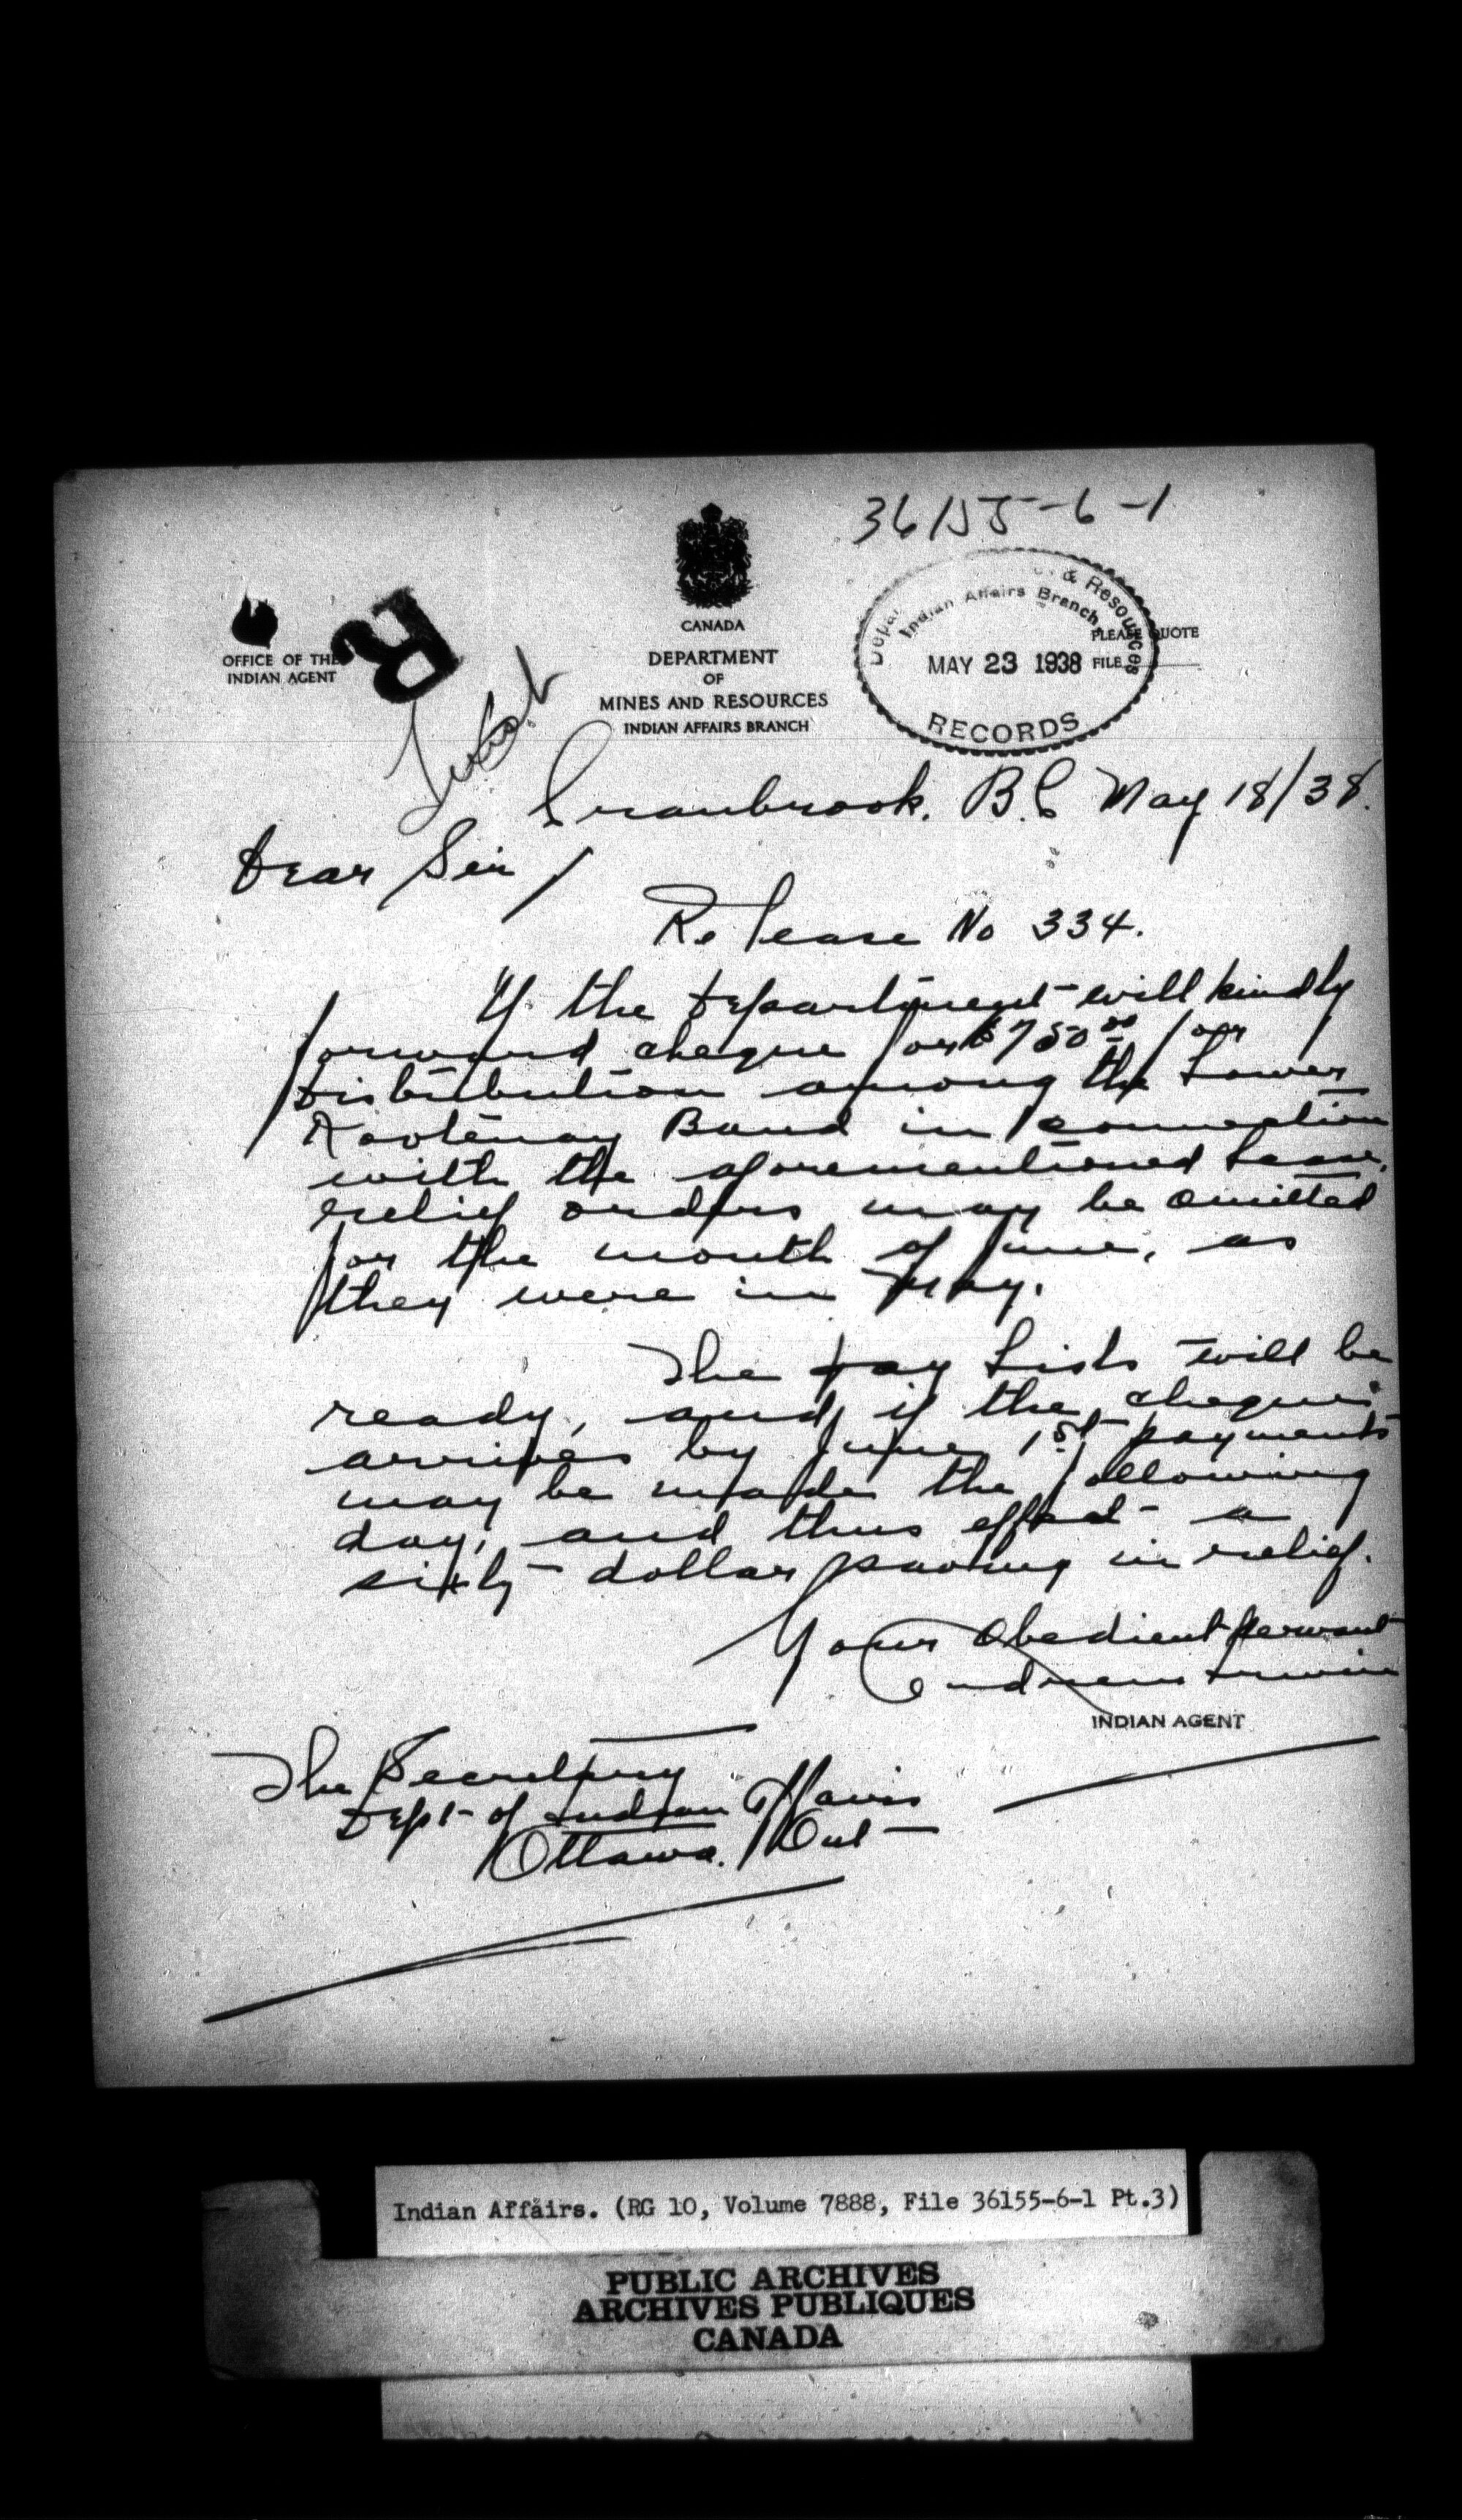 36155-6-1
CANADA
DEPARTMENT
OF
MINES AND RESOURCES
INDIAN AFFAIRS BRANCH
OFFICE OF THE
INDIAN AGENT
R
& Resources
Indian Affairs Branch
PLEASE QUOTE
MAY 23 1938 FILE
RECORDS
Cranbrook. B.C May 18/38.
Dear Sir/
Re Lease No 334.
If the Department will kindly
forward cheque for $750.00 for
Distribution among the Lower
Kootenay Band in connection
with the aforementioned Lease,
relief orders may be omitted
for the month of June, as
they were in May.
The Pay Lists will be
ready, and if the cheque
arrives by June 1st payments
may be made the following
day, and thus effect a
sixty dollar saving in relief.
Your Obedient Servant
Andrew Irwin
INDIAN AGENT
The Secretary
Dept of Indian Affairs
Ottawa. Ont
Indian Affairs. (RG 10, Volume 7888, File 36155-6-1 Pt.3)
PUBLIC ARCHIVES
ARCHIVES PUBLIQUES
CANADA